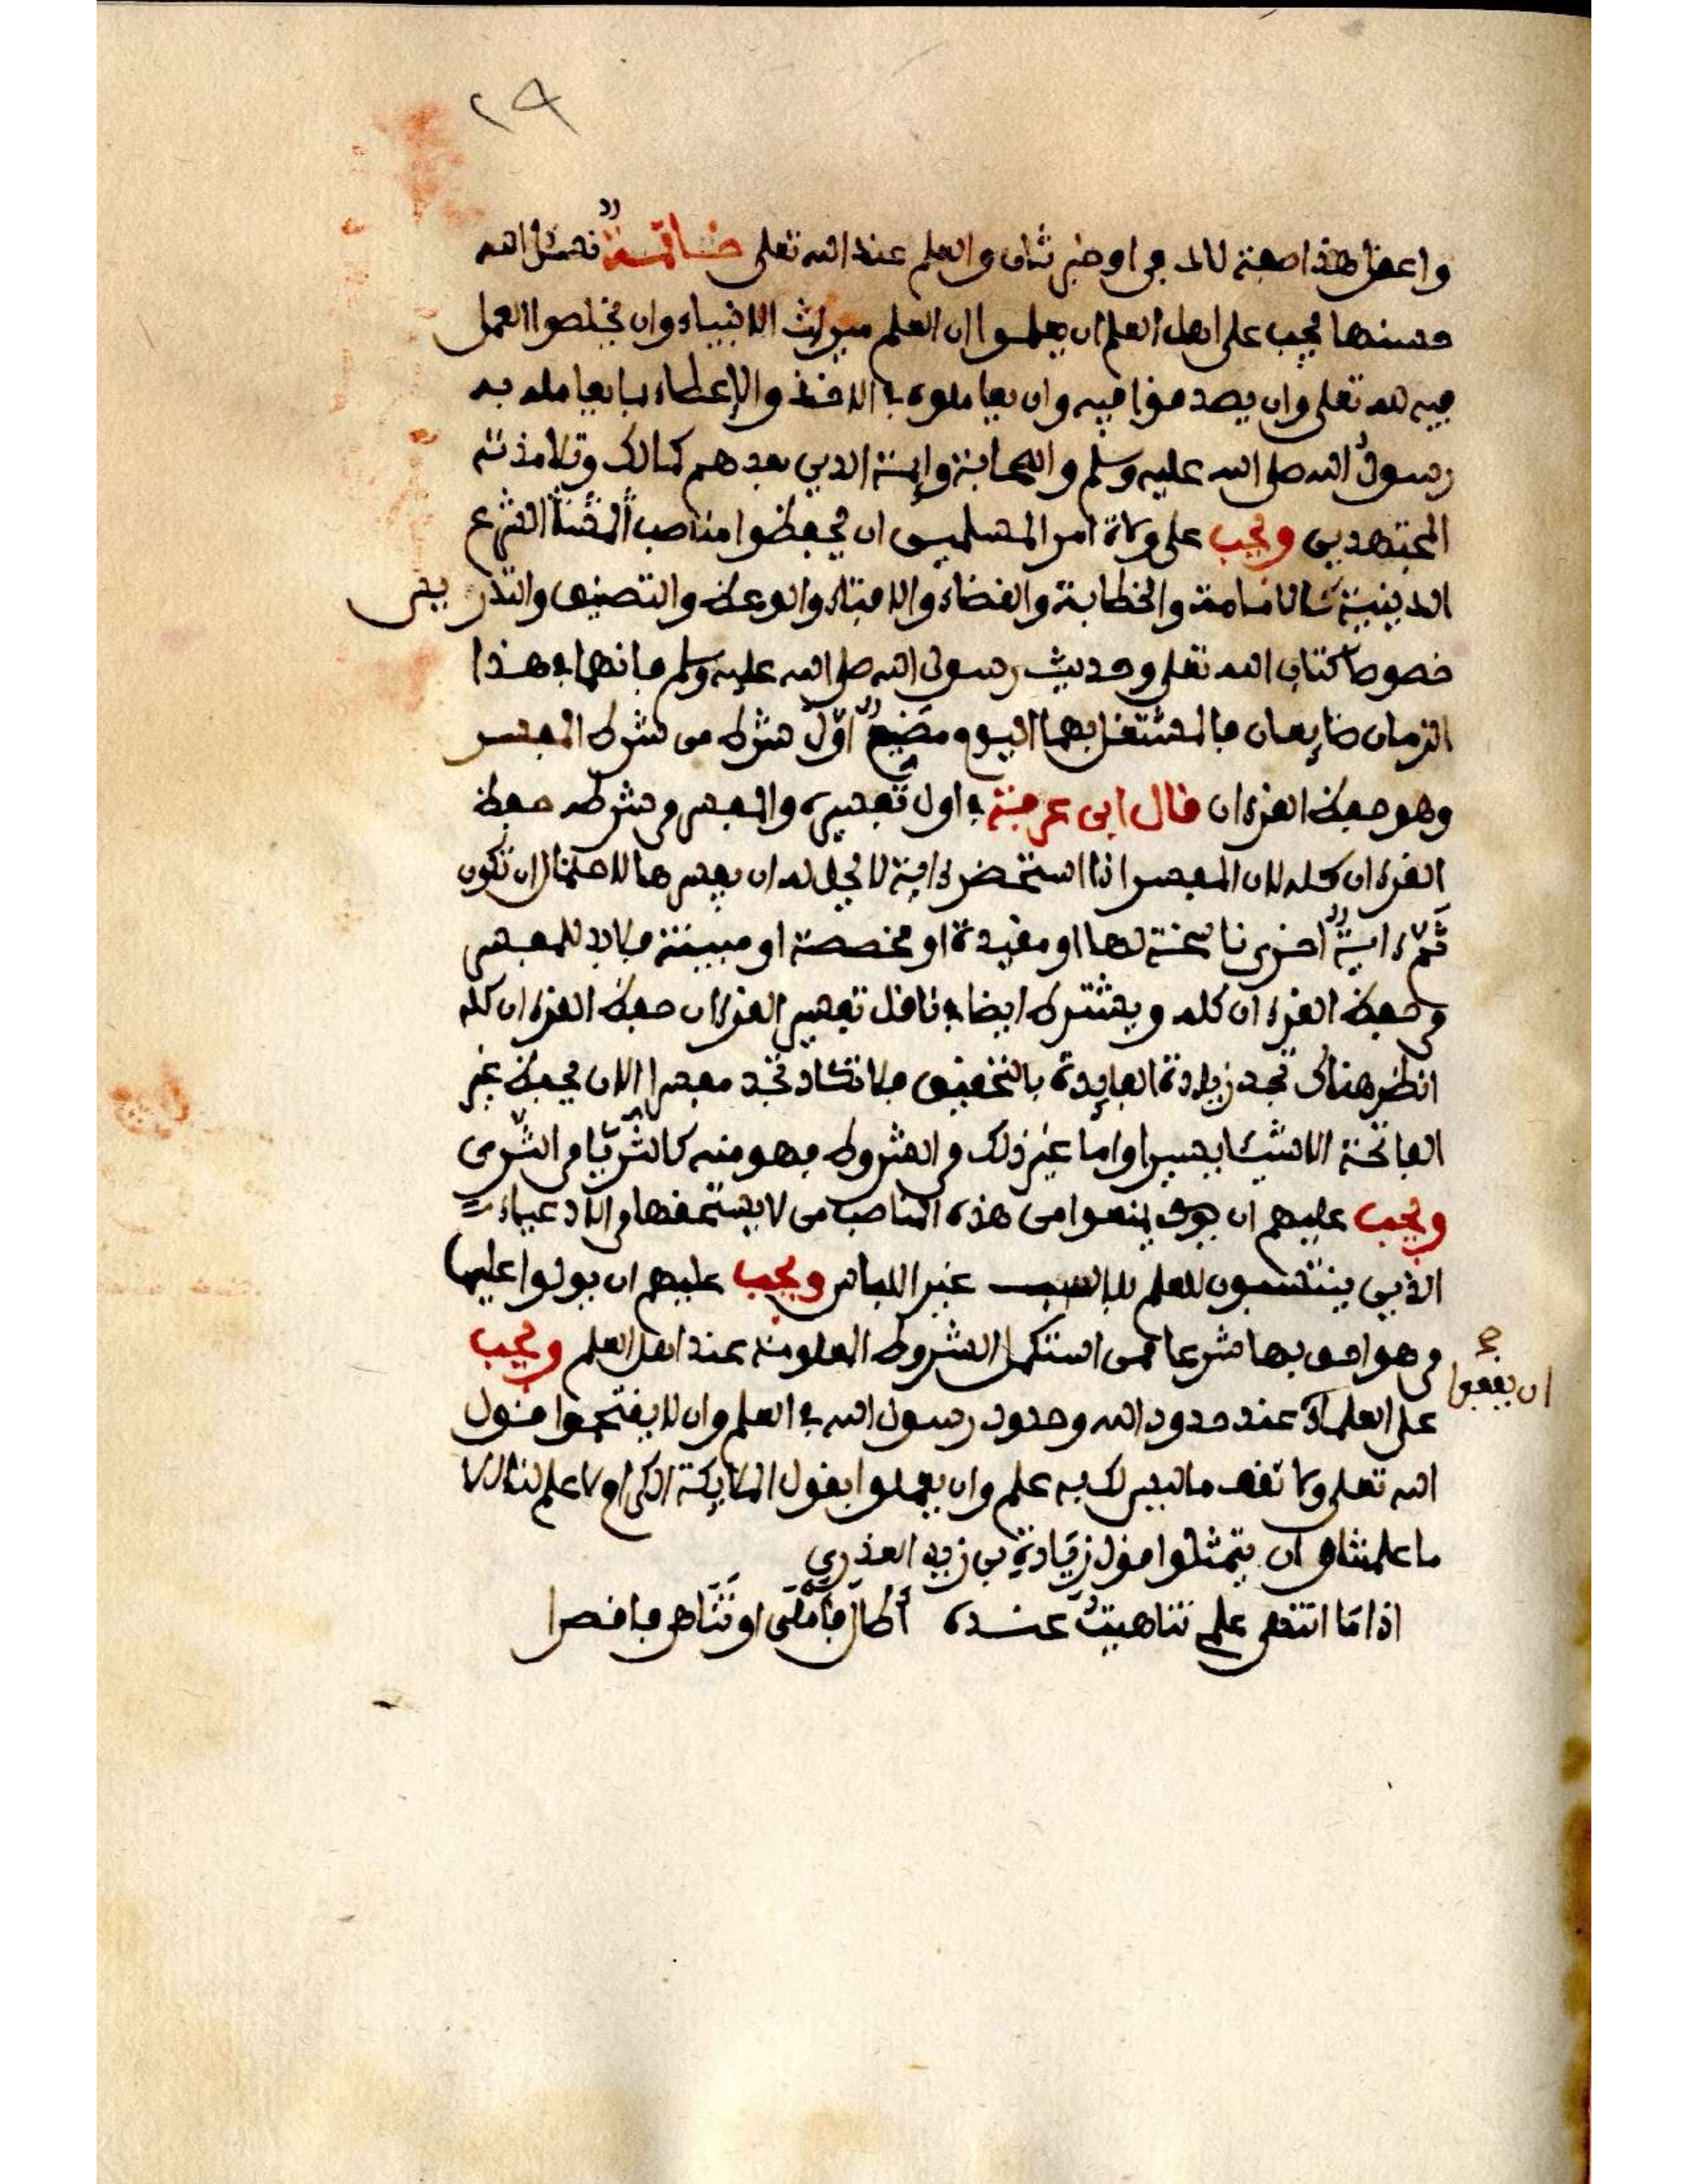 ٢٩
واعقل هذا صفة لا لد في اوخبر ثان والعلم عند الله تعلى خاتمة نسئل الله
حسنها يجب على اهل العلم ان يعلموا ان العلم ميراث الانبياء وان يخلصوا العمل
فيه لله تعلى وان يصدقوا فيه وان يعاملوه في الاخذ والاعطاء بما يعامله به
رسول الله صلى الله عليه وسلم والصحابة وايمة الدين بعدهم كمالك وتلامذته
المجتهدين ويجب على ولاة امر المسلمين ان يحفظوا مناصب الشرع
الدينية كالامامة والخطابة والقضاء والافتاء والوعظ والتصنيف والتدريس
خصوصا كتاب الله تعلى وحديث رسول الله صلى الله عليه وسلم فانهما في هذا
الزمان ضايعان فالمشتغل بهما اليوم مضيع اول شرط من شرط المفسر
وهو حفظ القرءان قال ابن عرفة في اول تفسيره والمفسر من شرطه حفظ
القرءان كله لان المفسر اذا استحضر ءاية لا يحل له ان يفسرها لاحتمال ان تكون
ثم ءاية اخرى ناسخة لها او مقيدة او مخصصة او مبينة فلا بد للمفسر
من حفظ القرءان كله ويشترط ايضا في ناقل تفسير القرءان حفظ القرءان كله
انظر هناك تجد زيادة الفايدة بالتحقيق فلا تكاد تجد مفسرا الان يحفظ غير
الفاتحة الا شيئا يسيرا واما غير ذلك من الشروط فهو منه كالثريا من الثرى
ويجب عليهم ان يمنعوا من هذه المناصب من لا يستحقها من الادعياء
الذين ينتسبون للعلم بلا سبب غير اللباس ويجب عليهم ان يولوا عليها
من هو احق بها شرعا ممن استكمل الشروط المعلومة عند اهل العلم ويجب
ان يقفوا صح
على العلماء عند حدود الله وحدود رسول الله في العلم وان لا يفتحموا قول
الله تعلى ولا تقف ما ليس لك به علم وان يعملوا بقول الملايكة الكرام لا علم لنا الا
ما علمتنا وان يتمثلوا قول زيادة بن زيد العذري
اذا ما انتهى علمي تناهيت عنده اطال فاملى او تناهى فاقصرا